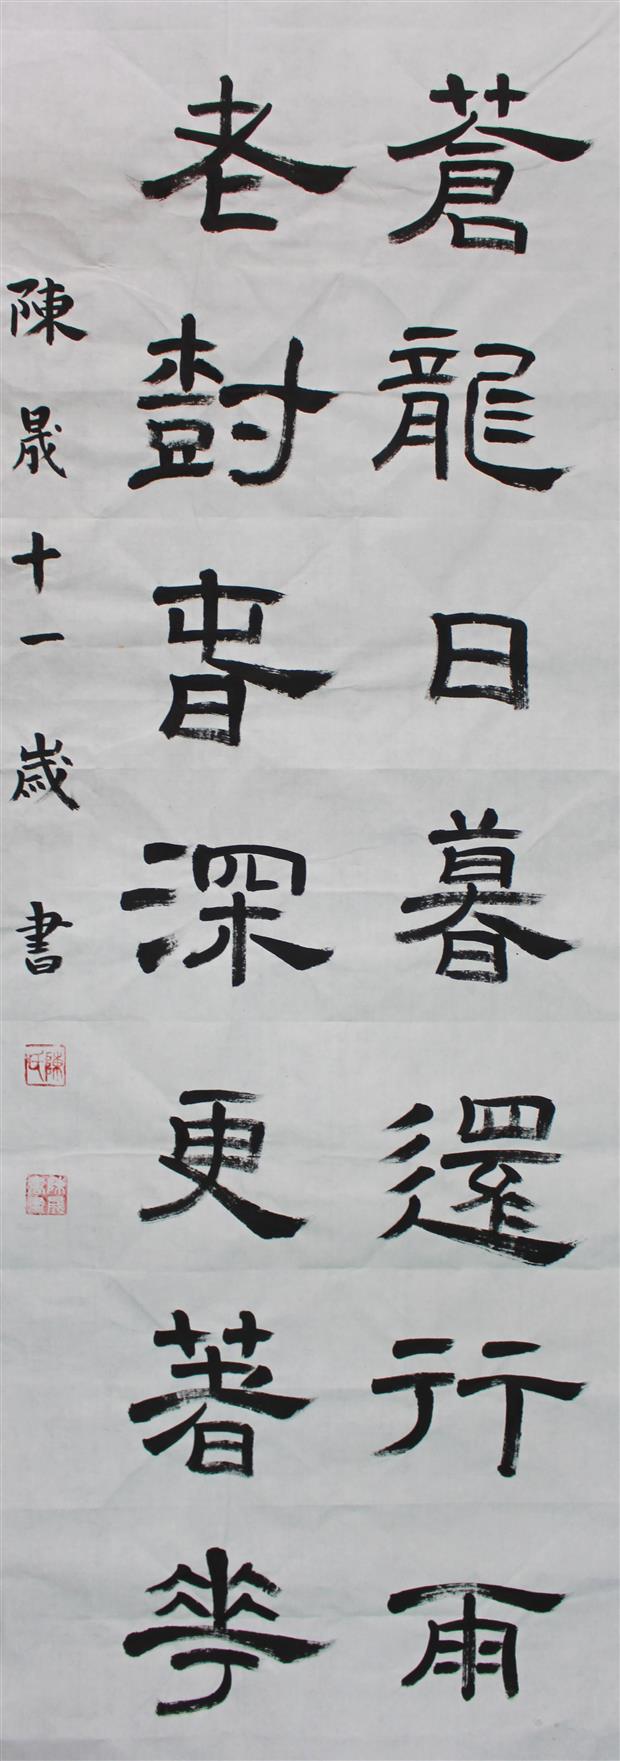 蒼龍日暮還行雨
老樹春深更著花
陳晟十一歲書
陳氏